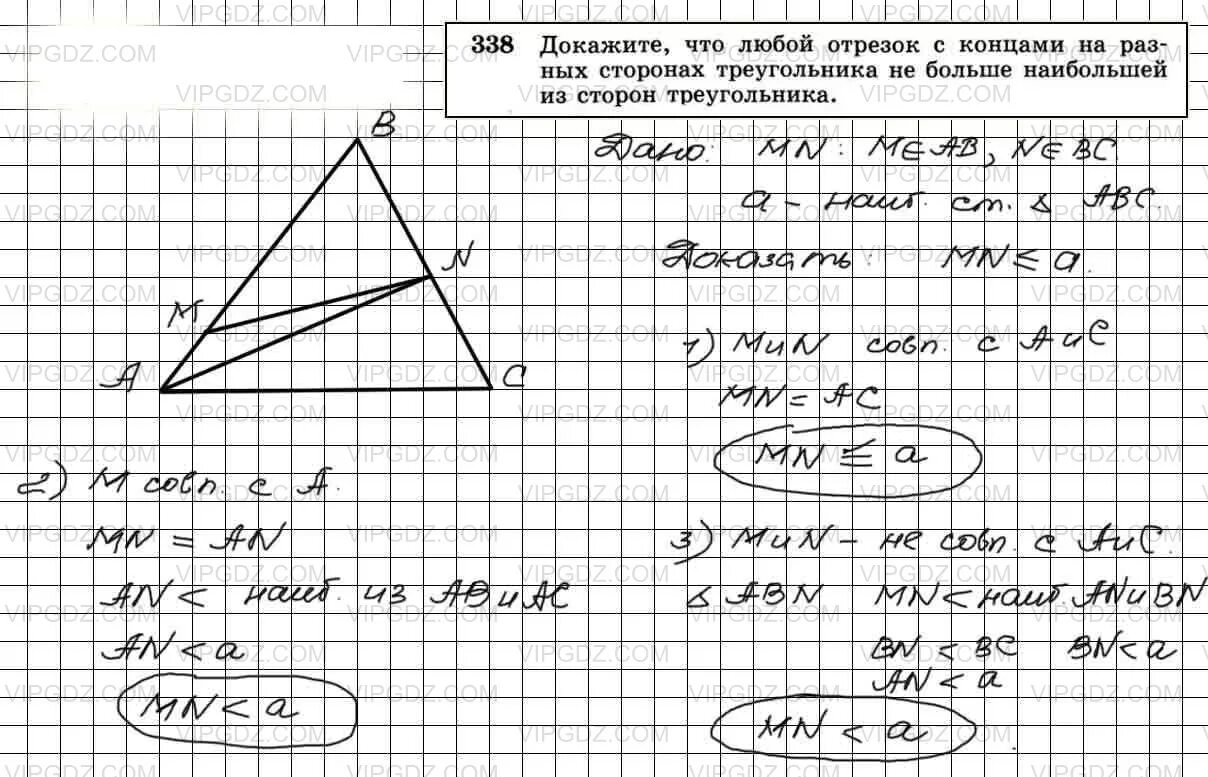 338 Докажите, что любой отрезок с концами на раз-
ных сторонах треугольника не больше наибольшей
из сторон треугольника.
B
N
M
A
C
Дано: MN: M∈AB, N∈BC
a - наиб. ст. Δ ABC.
Доказать: MN ≤ a.
1) M и N совп. с A и C
MN = AC
MN ≤ a
2) M совп. с A.
MN = AN
AN < наиб. из AB и AC
AN < a
MN < a
3) M и N - не совп. с A и C.
Δ ABN MN < наиб. AN и BN
BN < BC BN < a
AN < a
MN < a
VIPGDZ.COM